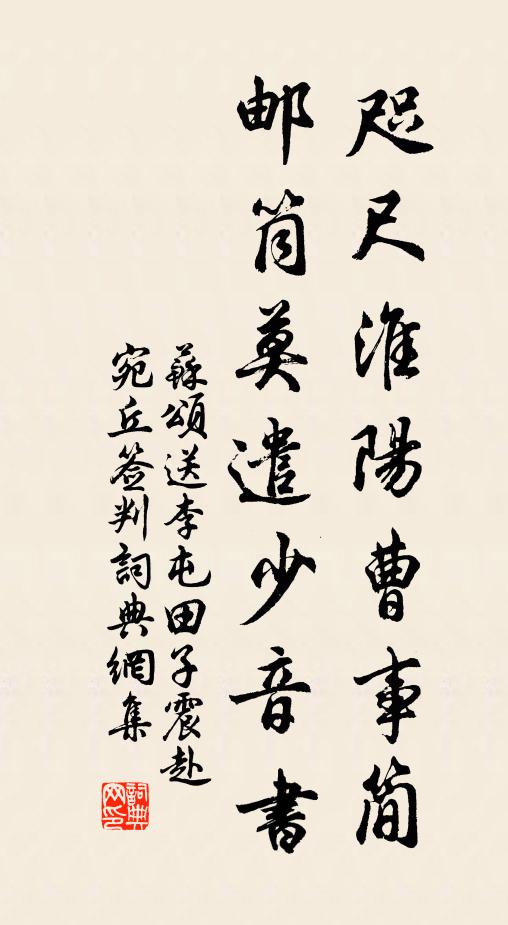 咫尺淮陽曹事简
邮筒莫遣少音書
蘇頌送李屯田子震赴
宛丘签判詞典網集
詞典网印